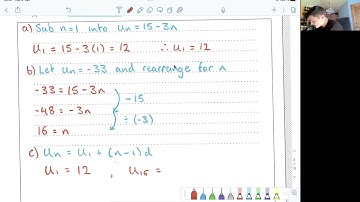 a) Sub n=1 into Un = 15-3n
U1 = 15-3(1) = 12 ∴ U1 = 12
b) Let Un = -33 and rearrange for n
-33 = 15-3n
-15
-48 = -3n
÷ (-3)
16 = n
c) Un = U1 + (n-1)d
U1 = 12 , U16 =